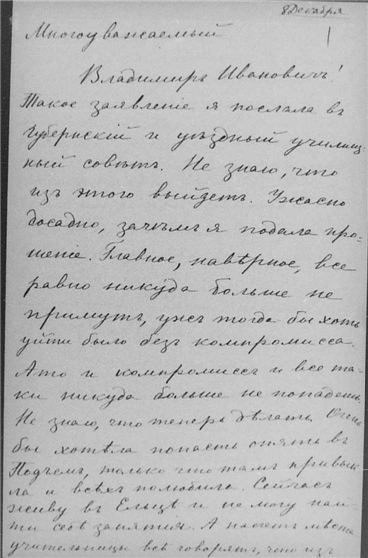 8 Декабря
1
Многоуважаемый
Владиміръ Ивановичъ!
Такое заявленіе я послала въ
губернскій и уѣздный училищ-
ный совѣтъ. Не знаю, что
изъ этого выйдетъ. Ужасно
досадно, зачѣмъ я подала про-
шеніе. Главное, навѣрное, все
равно никуда больше не
примутъ, ужъ тогда бы хоть
уйти было безъ компромисса.
А то и компромиссъ и все та-
ки никуда больше не попадешь.
Не знаю, что теперь дѣлать. Очень
бы хотѣла попасть опять въ
Подъемъ, только что тамъ привык-
ла и всѣхъ полюбила. Сейчасъ
живу въ Ельцѣ и не могу най-
ти себѣ занятія. А насчетъ мѣста
учительницы всѣ говорятъ, что изъ